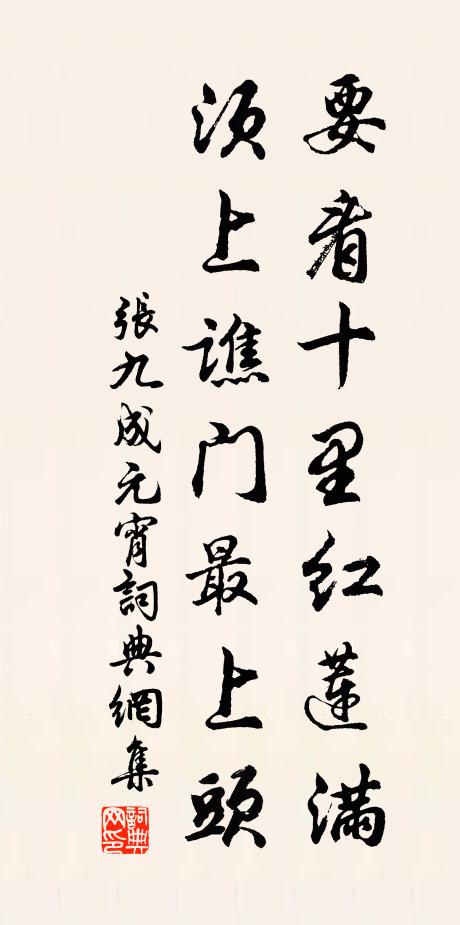 要看十里红莲满
须上谯门最上頭
張九成元宵詞典網集
詞典网印